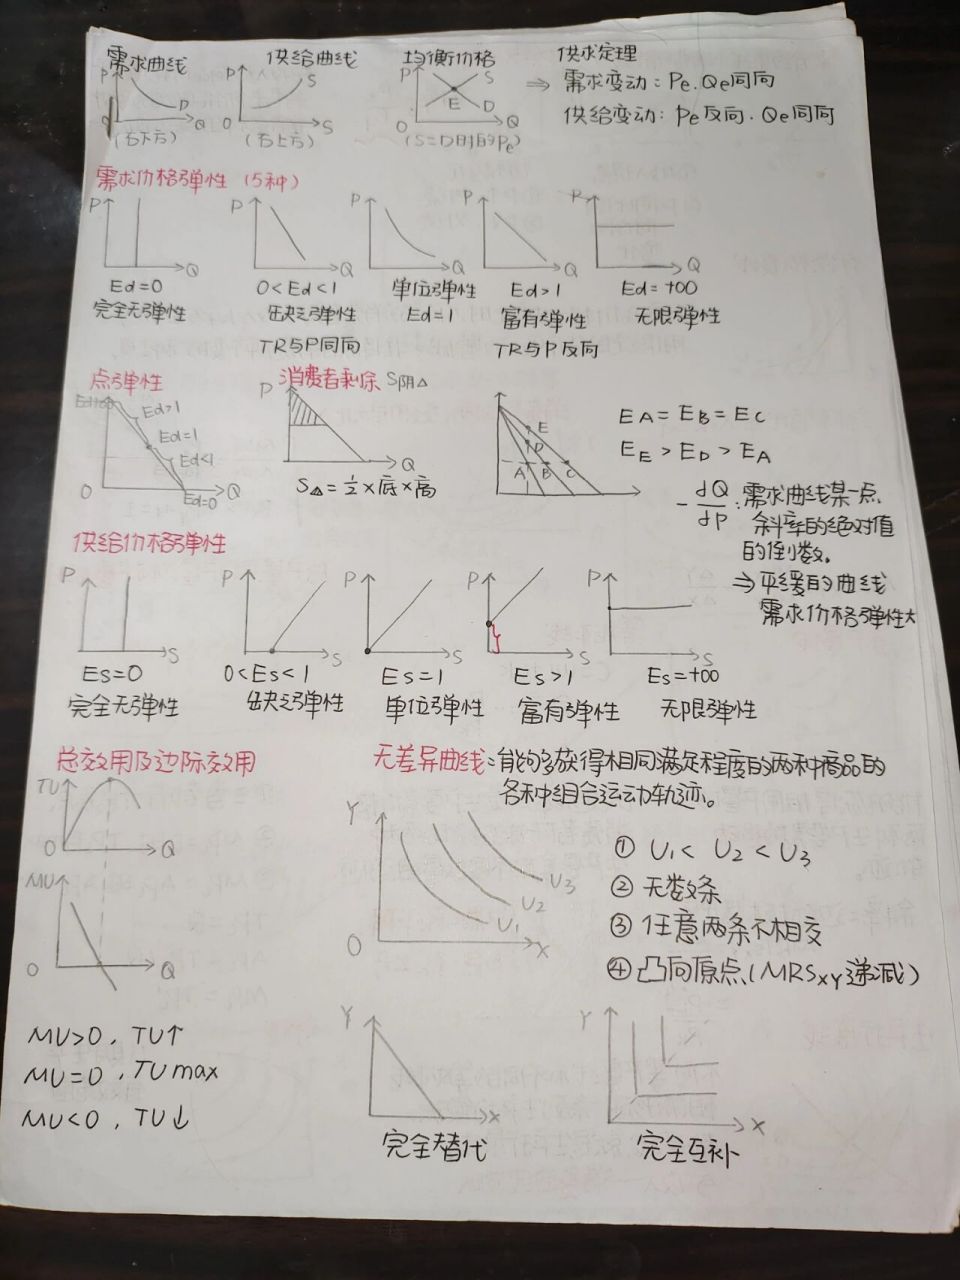 需求曲线 供给曲线 均衡价格 供求定理
P D O Q
P S O S
P S E D O Q
⇒ 需求变动：Pe.Qe同向
(右下方) (右上方) (S=D时的Pe) 供给变动：Pe反向.Qe同向
需求价格弹性（5种）
P Q P Q P Q P Q P Q
Ed=0 0<Ed<1 单位弹性 Ed>1 Ed=+∞
完全无弹性 缺乏弹性 Ed=1 富有弹性 无限弹性
TR与P同向 TR与P反向
点弹性 消费者剩余 S阴△
Ed>1
Ed=1
Ed<1
Ed=0
O Q
P Q
S△=½×底×高
E
D
A B C
EA=EB=EC
EE>ED>EA
-dQ/dP:需求曲线某一点
斜率的绝对值
的倒数。
⇒平缓的曲线
需求价格弹性大
供给价格弹性
P S P S P S P S P S
Es=0 0<Es<1 Es=1 Es>1 Es=+∞
完全无弹性 缺乏弹性 单位弹性 富有弹性 无限弹性
总效用及边际效用 无差异曲线:能够获得相同满足程度的两种商品的
各种组合运动轨迹。
TU O Q
MU O Q
Y U3 U2 U1 O X
① U1< U2 < U3
② 无数条
③ 任意两条不相交
④ 凸向原点(MRSxy递减)
MU>0，TU↑
MU=0，TU max
MU<0，TU↓
Y X Y X
完全替代 完全互补